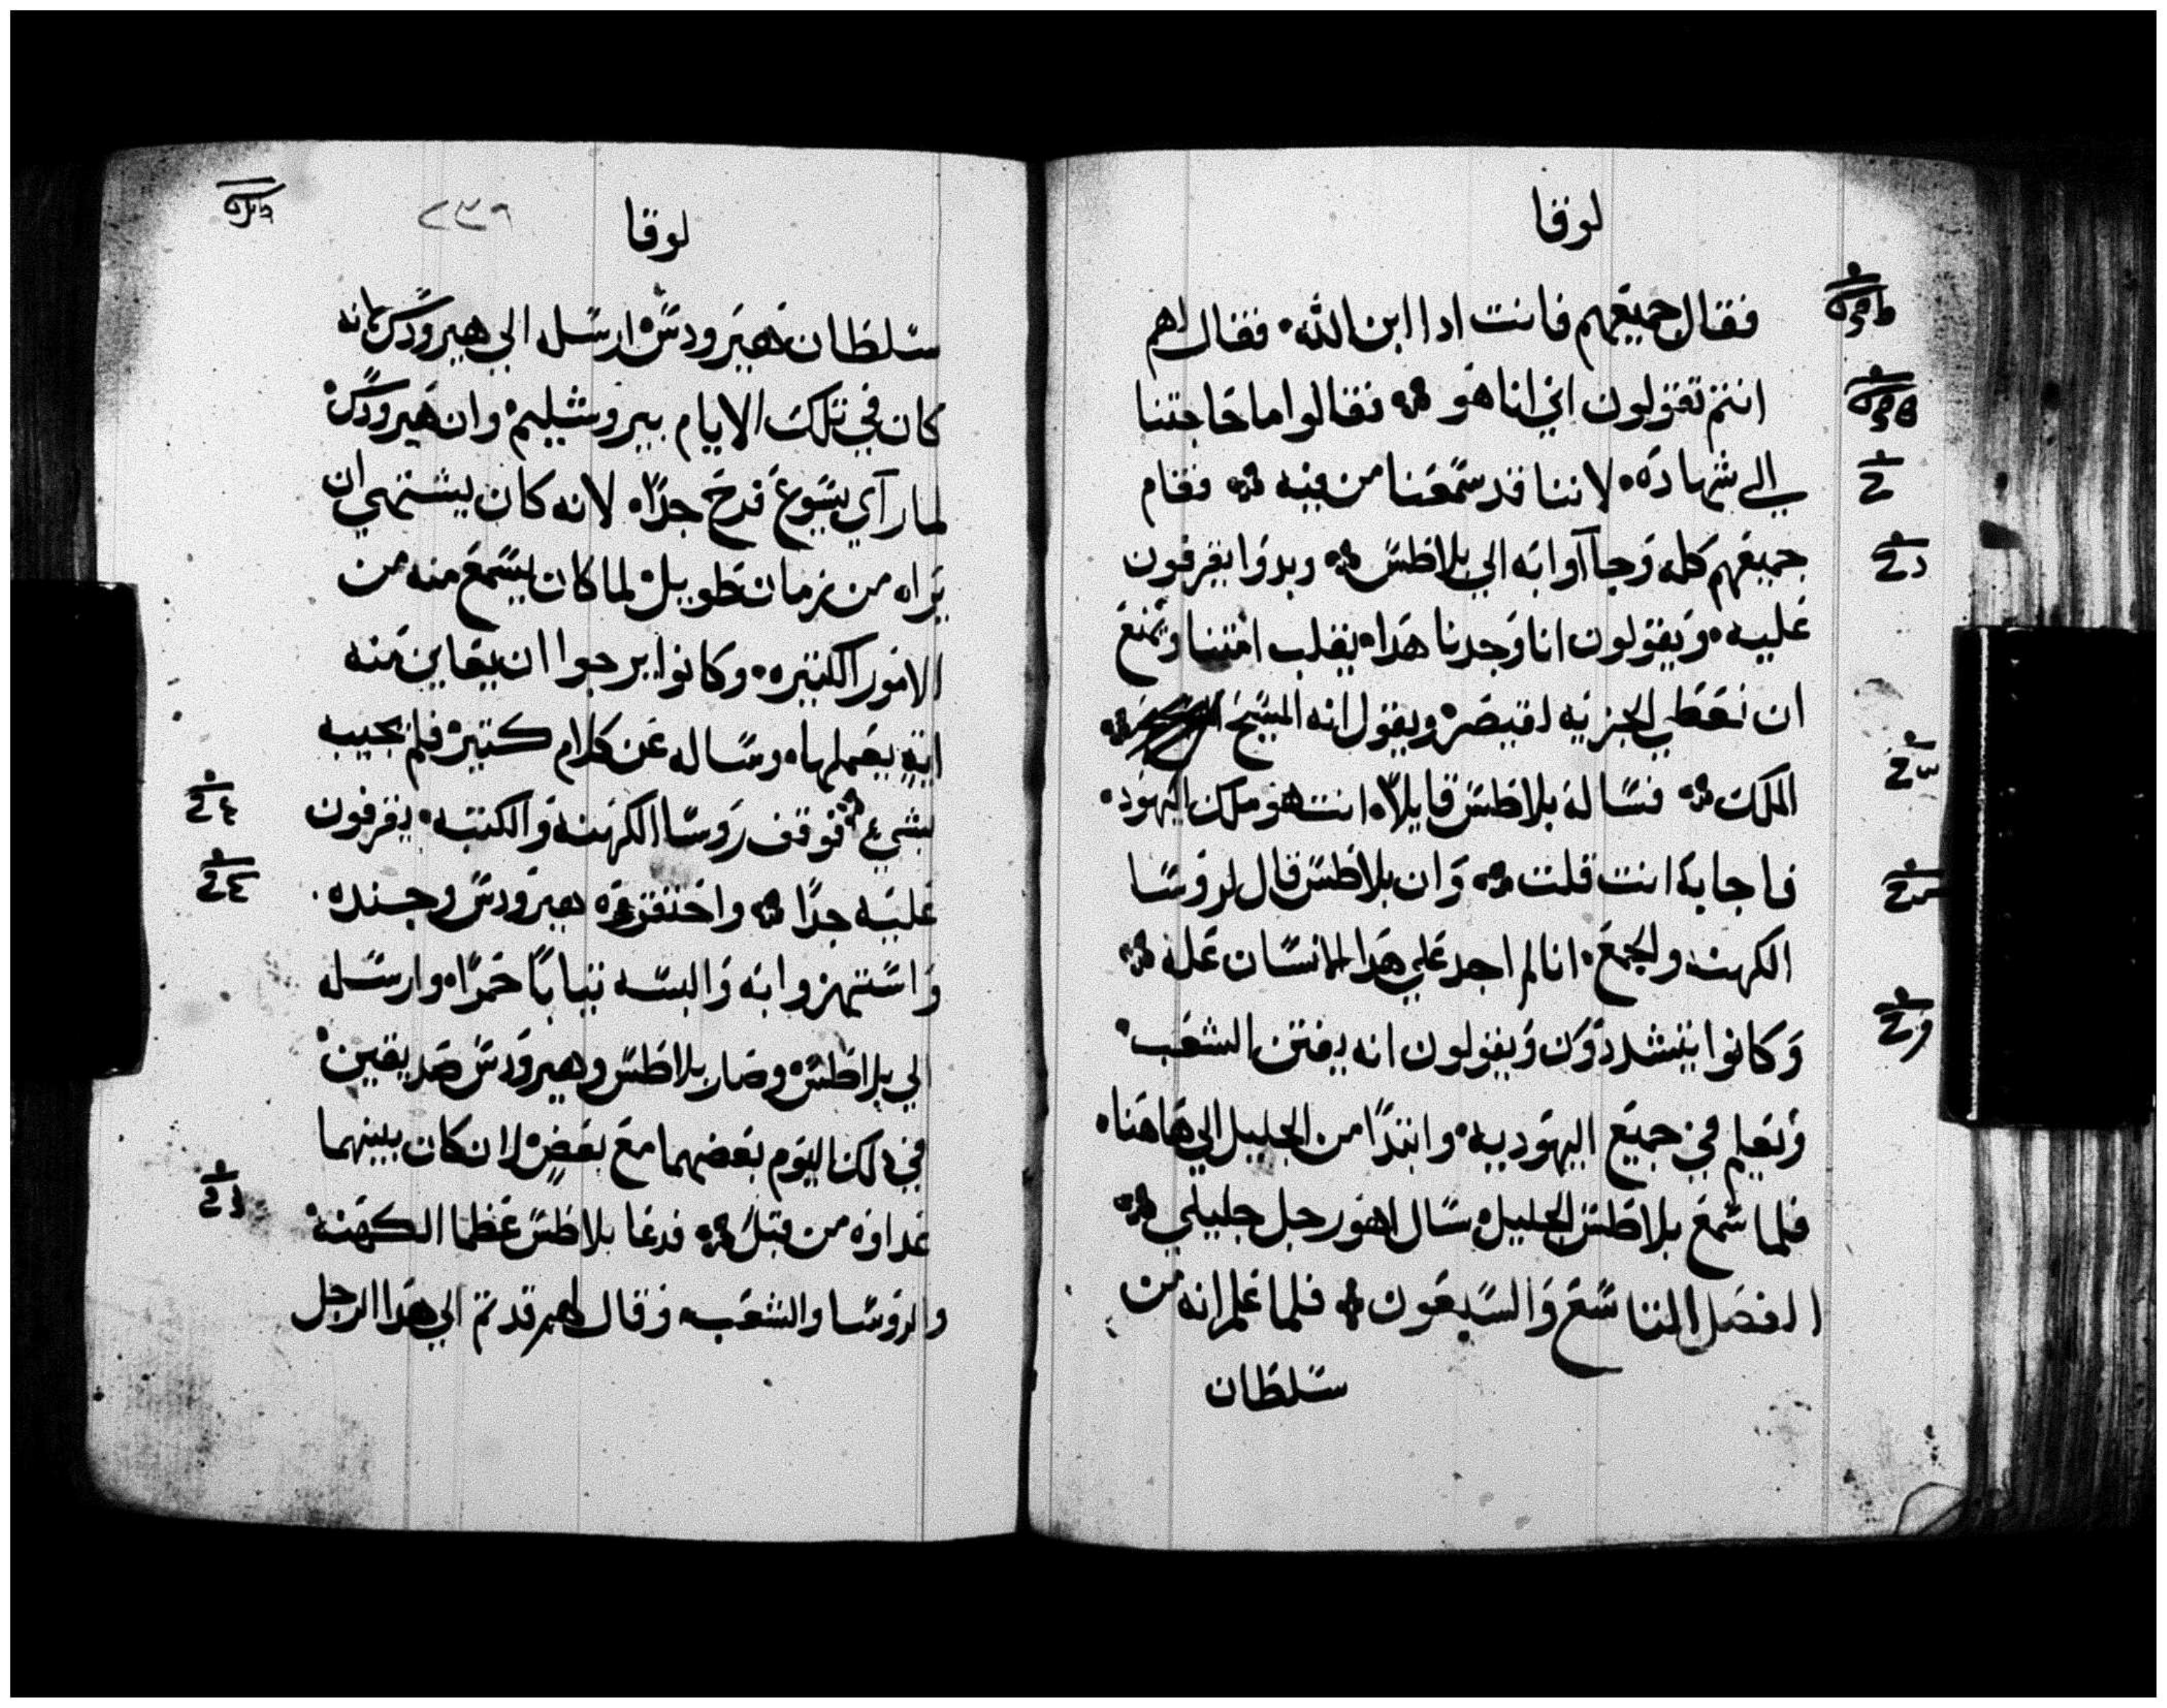 لوقا
فقال جميعهم فانت ادا ابن الله۰ فقال لهم
انتم تقولون اني انا هو ฺ فقالوا ما حاجتنا
الي شهاده۰ لاننا قد سمعنا من فيه فقام
جميعهم كله وجآآوا به الي بلاطس وبدوا يقرفون
عليه۰ ويقولون انا وجدنا هدا۰ يقلب امتنا ويمنع
ان نعطي الجزيه لقيصر۰ ويقول انه المسيح
الملك فساله بلاطس قايلاً۰ انت هو ملك اليهود۰
فاجابه انت قلت وان بلاطس قال لروسا
الكهنه والجمع۰ انا لم اجد علي هدا الانسان عله
وكانوا يتشددون ويقولون انه يفتن الشعب۰
ويعلم في جميع اليهوديه۰ وابتدا من الجليل الي هاهنا۰
فلما سمع بلاطس الجليل۰ سال اهو رجل جليلي
الفصل التاسع والسبعون فلما علم انه من
سلطان
لوقا ٢٣٩
سلطان هيرودس۰ ارسله الي هيرودس لانه
كان في تلك الايام بيروشليم۰ وان هيرودس۰
لما رآي يسوع فرح جدًا۰ لانه كان يشتهي ان
يراه من زمان طويل۰ لما كان يسمع منه من
الامور الكتيره۰ وكانوا يرجوا ان يعاين منه
ايةٍ يعملها۰ وساله عن كلام كتير۰ فلم يجيبه
بشيء فوقف روسا الكهنه والكتبه۰ يقرفون
عليه جدًا واحتقره هيرودس وجنده۰
واستهزوا به والبسه تيابًا حمرًا۰ وارسله
الي بلاطس۰ وصار بلاطس وهيرودس صديقين۰
في دلك اليوم بعضهما مع بعض۰ لان كان بينهما
عداوه من قبل فدعا بلاطس عظما الكهنه۰
والروسا والشعب وقال لهم قدمتم الي هدا الرجل